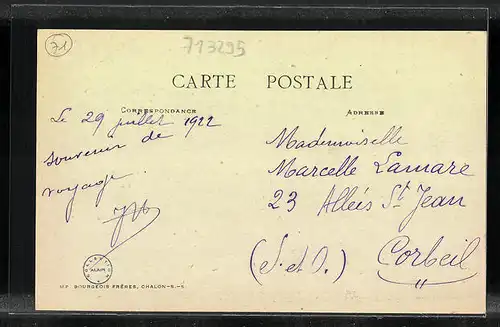 71
713295
CARTE POSTALE
CORRESPONDANCE
ADRESSE
Le 29 juillet 1922
souvenir de
voyage
Mademoiselle
Marcelle Lamare
23 Alleés St Jean
Corbeil
(S. et O.)
MF. BOURGEOIS FRÈRES, CHALON-S.-S.